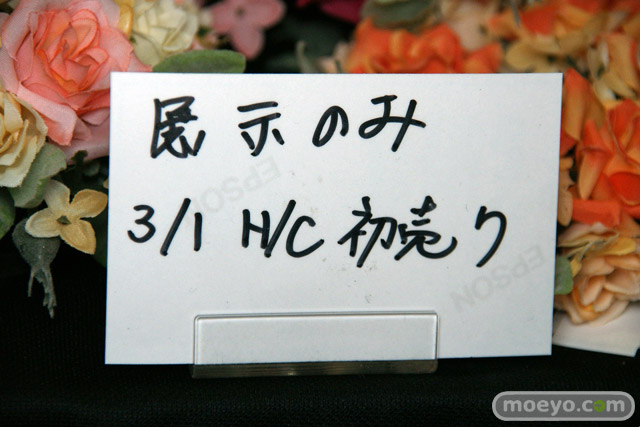 展示のみ
3/1 H/C 初売り
EPSON
EPSON
moeyo.com